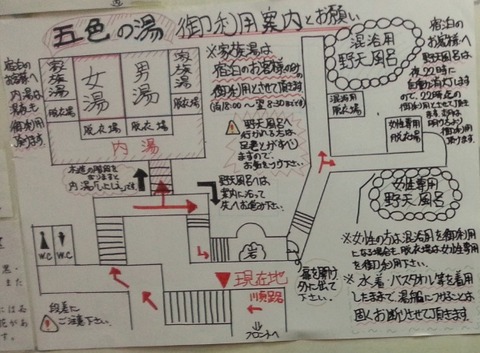 五色の湯 御利用案内とお願い
宿泊の
お客様へ
内湯は
御利用
家族湯
女湯
男湯
家族湯
脱衣場
脱衣場
脱衣場
脱衣場
内湯
※家族湯は
宿泊のお客様のみの
御利用とさせて頂きます
野天風呂へ
行かれる方は
足もとが
ますので
お気をつけ下さい
野天風呂へは
案内に沿って
お進み下さい
混浴用
野天風呂
混浴用
脱衣場
宿泊の
お客様へ
野天風呂は
夜22時に
22時迄の
御利用とさせて頂き
女性専用
脱衣場
女性専用
野天風呂
W.C
W.C
段差に
ご注意下さい
現在地
フロントへ
扉を開け
外に出て
下さい
※女性の方は混浴用を御利用
になる場合も、脱衣場は女性専用
を御利用下さい。
※水着・バスタオル等を着用
したままで湯舟につかることは
固くお断りさせて頂きます。